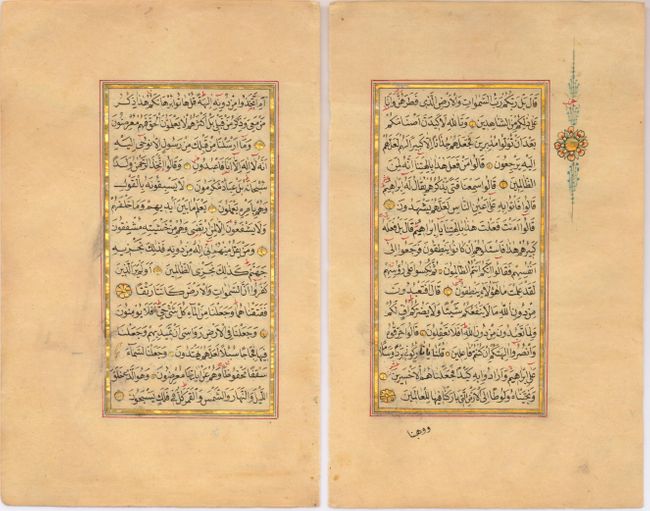 قَالَ بَلْ رَبُّكُمْ رَبُّ السَّمٰوَاتِ وَالْاَرْضِ الَّذِي فَطَرَهُنَّ وَاَنَا
عَلٰى ذٰلِكُمْ مِنَ الشَّاهِدِينَ وَتَاللّٰهِ لَاَكِيدَنَّ اَصْنَامَكُمْ
بَعْدَ اَنْ تُوَلُّوا مُدْبِرِينَ فَجَعَلَهُمْ جُذَاذًا اِلَّا كَبِيرًا لَهُمْ لَعَلَّهُمْ
اِلَيْهِ يَرْجِعُونَ قَالُوا مَنْ فَعَلَ هٰذَا بِاٰلِهَتِنَا اِنَّهُ لَمِنَ
الظَّالِمِينَ قَالُوا سَمِعْنَا فَتًى يَذْكُرُهُمْ يُقَالُ لَهُ اِبْرٰهِيمُ
قَالُوا فَأْتُوا بِهِ عَلٰى اَعْيُنِ النَّاسِ لَعَلَّهُمْ يَشْهَدُونَ
قَالُوا ءَاَنْتَ فَعَلْتَ هٰذَا بِاٰلِهَتِنَا يَا اِبْرٰهِيمُ قَالَ بَلْ فَعَلَهُ
كَبِيرُهُمْ هٰذَا فَاسْئَلُوهُمْ اِنْ كَانُوا يَنْطِقُونَ فَرَجَعُوا اِلٰى
اَنْفُسِهِمْ فَقَالُوا اِنَّكُمْ اَنْتُمُ الظَّالِمُونَ ثُمَّ نُكِسُوا عَلٰى رُؤُسِهِمْ
لَقَدْ عَلِمْتَ مَا هٰؤُلَاءِ يَنْطِقُونَ قَالَ اَفَتَعْبُدُونَ
مِنْ دُونِ اللّٰهِ مَا لَا يَنْفَعُكُمْ شَيْئًا وَلَا يَضُرُّكُمْ اُفٍّ لَكُمْ
وَلِمَا تَعْبُدُونَ مِنْ دُونِ اللّٰهِ اَفَلَا تَعْقِلُونَ قَالُوا حَرِّقُوهُ
وَانْصُرُوا اٰلِهَتَكُمْ اِنْ كُنْتُمْ فَاعِلِينَ قُلْنَا يَا نَارُ كُونِي بَرْدًا وَسَلَامًا
عَلٰى اِبْرٰهِيمَ وَاَرَادُوا بِهِ كَيْدًا فَجَعَلْنَاهُمُ الْاَخْسَرِينَ
وَنَجَّيْنَاهُ وَلُوطًا اِلَى الْاَرْضِ الَّتِي بَارَكْنَا فِيهَا لِلْعَالَمِينَ
ووهبنا
اَمِ اتَّخَذُوا مِنْ دُونِهِ اٰلِهَةً قُلْ هَاتُوا بُرْهَانَكُمْ هٰذَا ذِكْرُ
مَنْ مَعِيَ وَذِكْرُ مَنْ قَبْلِي بَلْ اَكْثَرُهُمْ لَا يَعْلَمُونَ الْحَقَّ فَهُمْ مُعْرِضُونَ
وَمَا اَرْسَلْنَا مِنْ قَبْلِكَ مِنْ رَسُولٍ اِلَّا نُوحِي اِلَيْهِ
اَنَّهُ لَا اِلٰهَ اِلَّا اَنَا فَاعْبُدُونِ وَقَالُوا اتَّخَذَ الرَّحْمٰنُ وَلَدًا
سُبْحَانَهُ بَلْ عِبَادٌ مُكْرَمُونَ لَا يَسْبِقُونَهُ بِالْقَوْلِ
وَهُمْ بِاَمْرِهِ يَعْمَلُونَ يَعْلَمُ مَا بَيْنَ اَيْدِيهِمْ وَمَا خَلْفَهُمْ
وَلَا يَشْفَعُونَ اِلَّا لِمَنِ ارْتَضٰى وَهُمْ مِنْ خَشْيَتِهِ مُشْفِقُونَ
وَمَنْ يَقُلْ مِنْهُمْ اِنِّي اِلٰهٌ مِنْ دُونِهِ فَذٰلِكَ نَجْزِيهِ
جَهَنَّمَ كَذٰلِكَ نَجْزِي الظَّالِمِينَ اَوَلَمْ يَرَ الَّذِينَ
كَفَرُوا اَنَّ السَّمٰوَاتِ وَالْاَرْضَ كَانَتَا رَتْقًا
فَفَتَقْنَاهُمَا وَجَعَلْنَا مِنَ الْمَاءِ كُلَّ شَيْءٍ حَيٍّ اَفَلَا يُؤْمِنُونَ
وَجَعَلْنَا فِي الْاَرْضِ رَوَاسِيَ اَنْ تَمِيدَ بِهِمْ وَجَعَلْنَا
فِيهَا فِجَاجًا سُبُلًا لَعَلَّهُمْ يَهْتَدُونَ وَجَعَلْنَا السَّمَاءَ
سَقْفًا مَحْفُوظًا وَهُمْ عَنْ اٰيَاتِهَا مُعْرِضُونَ وَهُوَ الَّذِي خَلَقَ
الَّيْلَ وَالنَّهَارَ وَالشَّمْسَ وَالْقَمَرَ كُلٌّ فِي فَلَكٍ يَسْبَحُونَ